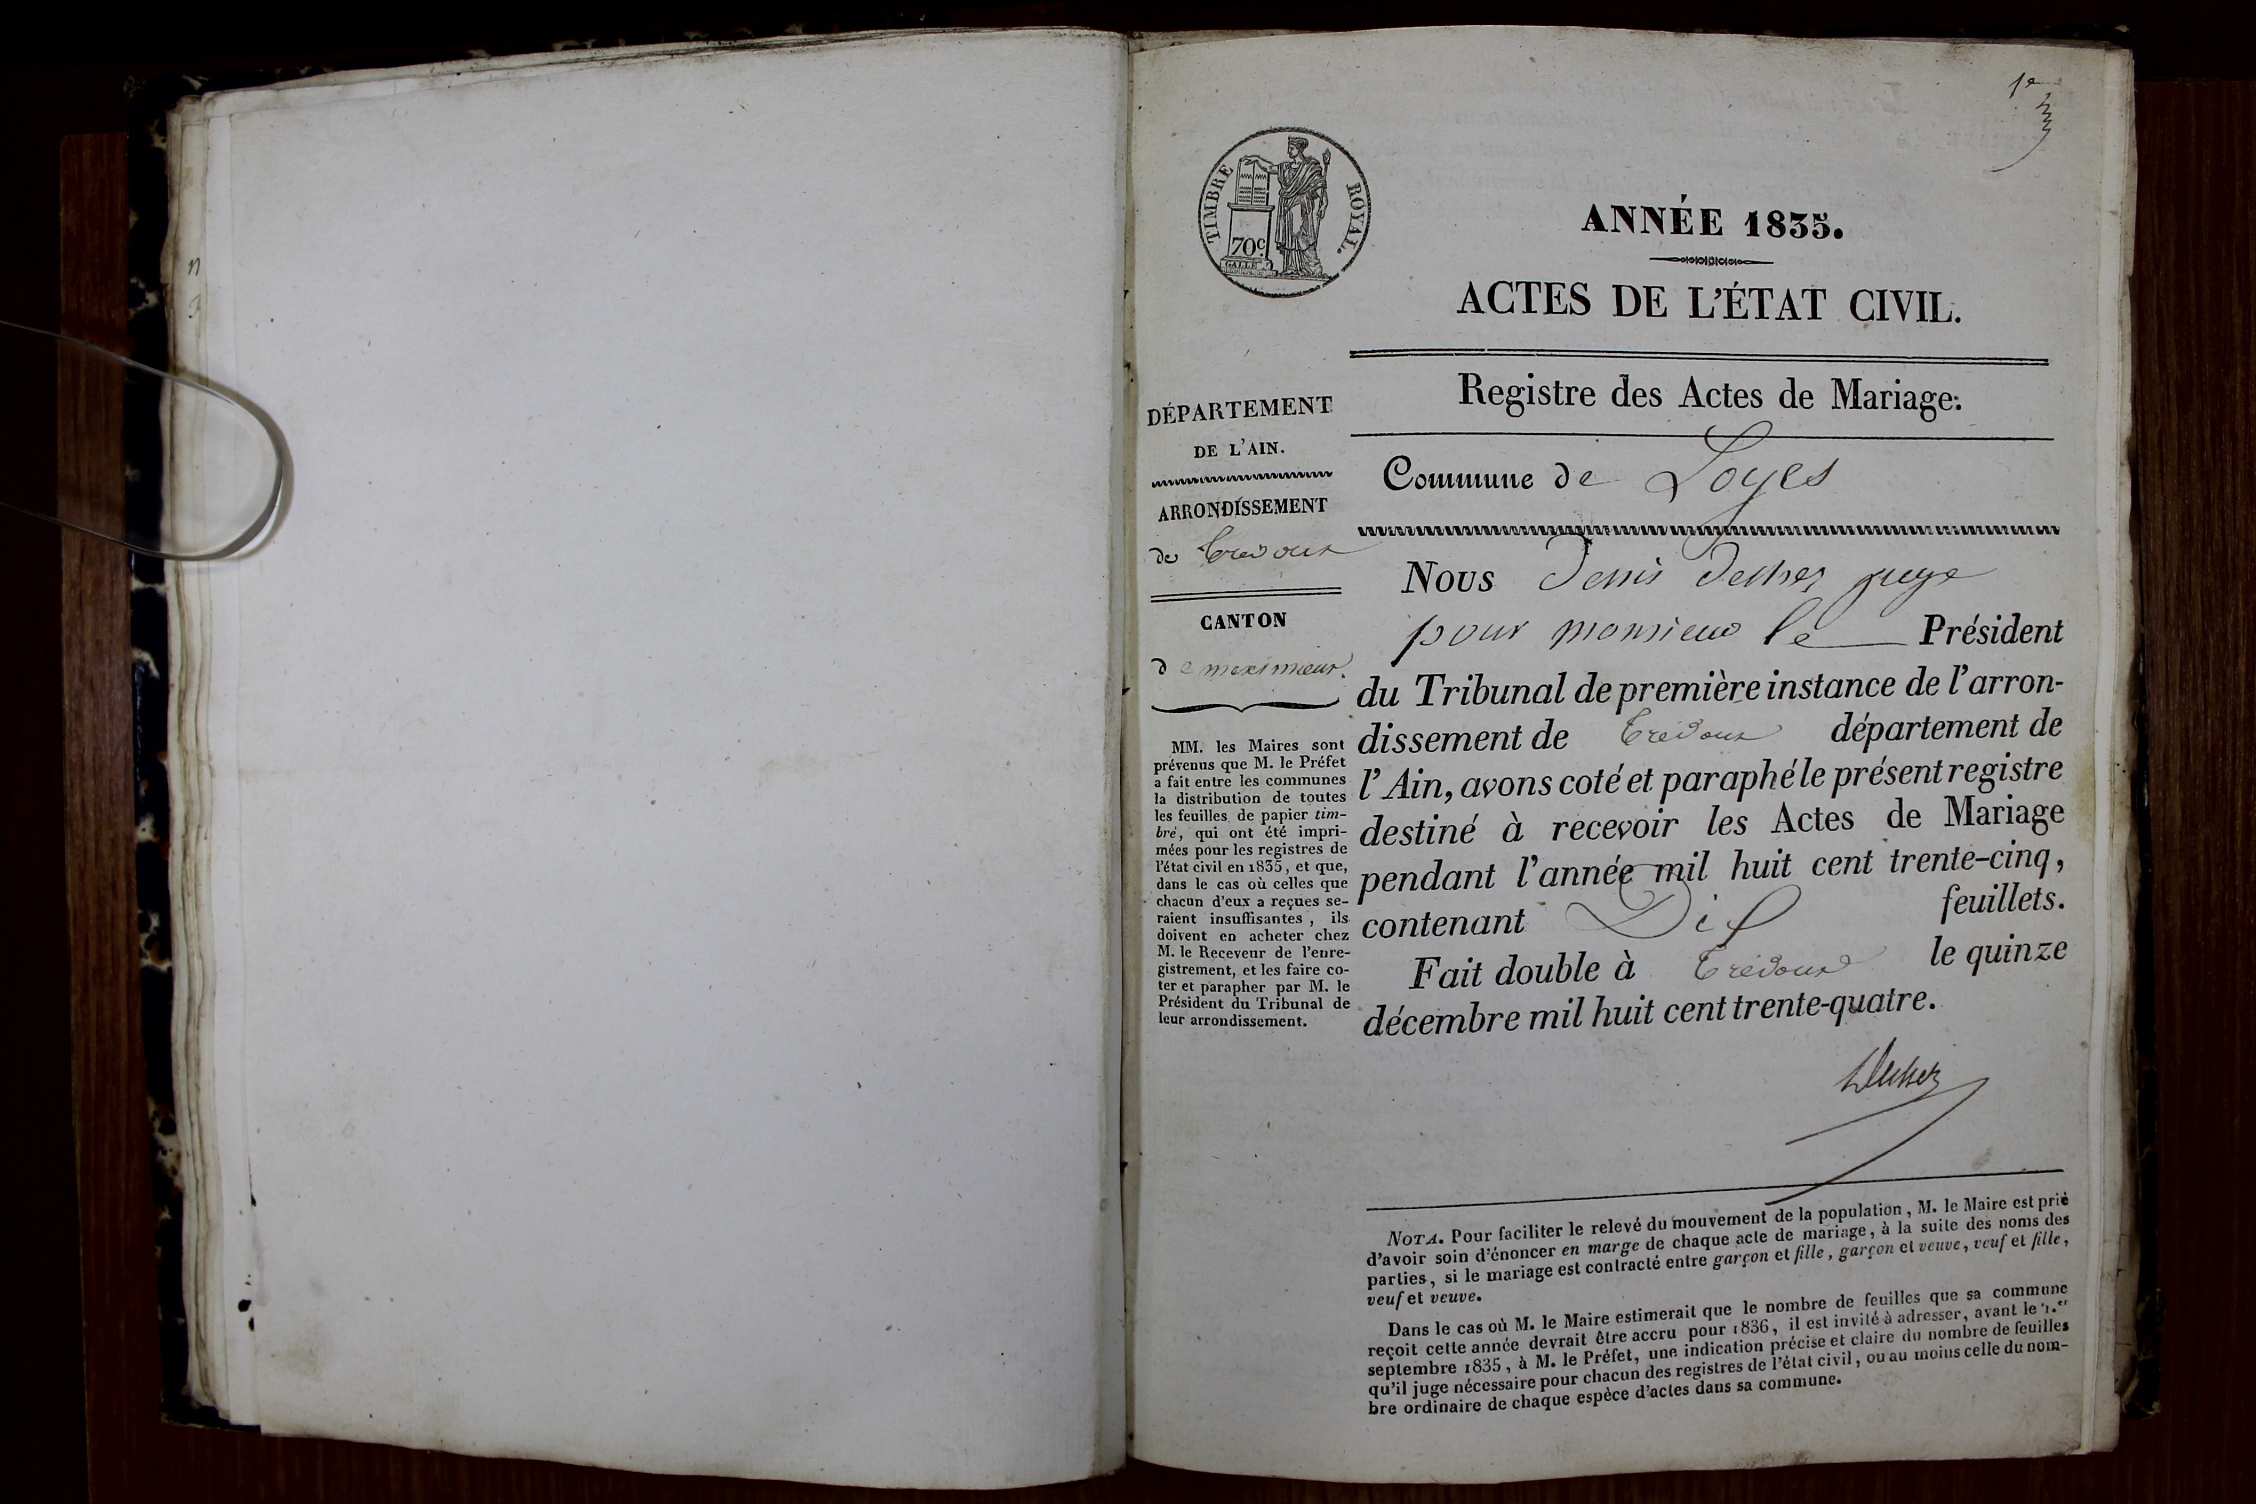 1e
TIMBRE ROYAL.
70c
GALLE
ANNÉE 1835.
ACTES DE L'ÉTAT CIVIL.
Registre des Actes de Mariage:
DÉPARTEMENT
DE L'AIN.
ARRONDISSEMENT
de Trevoux
CANTON
de meximieux.
MM. les Maires sont
prévenus que M. le Préfet
a fait entre les communes
la distribution de toutes
les feuilles de papier tim-
bré, qui ont été impri-
mées pour les registres de
l'état civil en 1835, et que,
dans le cas où celles que
chacun d'eux a reçues se-
raient insuffisantes, ils
doivent en acheter chez
M. le Receveur de l'enre-
gistrement, et les faire co-
ter et parapher par M. le
Président du Tribunal de
leur arrondissement.
Commune de Loyes
Nous Denis juge
pour monsieur le Président
du Tribunal de première instance de l'arron-
dissement de Trévoux département de
l'Ain, avons coté et paraphé le présent registre
destiné à recevoir les Actes de Mariage
pendant l'année mil huit cent trente-cinq,
contenant Dix feuillets.
Fait double à Trévoux le quinze
décembre mil huit cent trente-quatre.
NOTA. Pour faciliter le relevé du mouvement de la population, M. le Maire est prié
d'avoir soin d'énoncer en marge de chaque acte de mariage, à la suite des noms des
parties, si le mariage est contracté entre garçon et fille, garçon et veuve, veuf et fille,
veuf et veuve.
Dans le cas où M. le Maire estimerait que le nombre de feuilles que sa commune
reçoit cette année devrait être accru pour 1836, il est invité à adresser, avant le 1.er
septembre 1835, à M. le Préfet, une indication précise et claire du nombre de feuilles
qu'il juge nécessaire pour chacun des registres de l'état civil, ou au moins celle du nom-
bre ordinaire de chaque espèce d'actes dans sa commune.